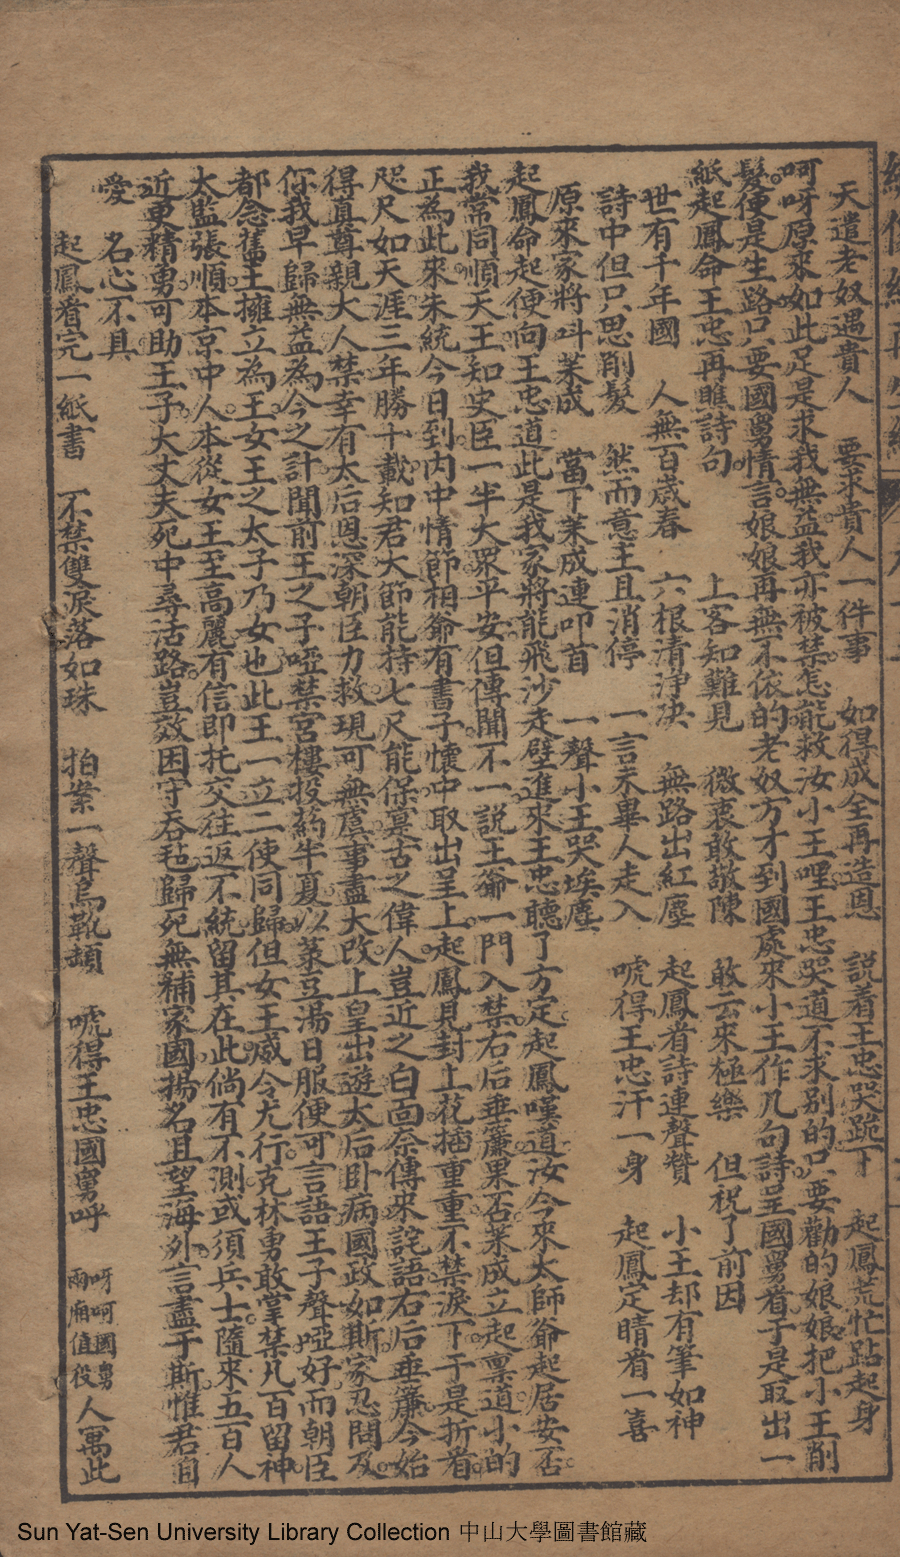 天遣老奴遇貴人　要求貴人一件事　如得成全再造恩　説着王忠哭跪下　起鳳荒忙跕起身
呵呀原來如此足是求我無益我亦被禁怎能救汝小王哩王忠哭道不求別的只要勸的娘娘把小王削
髮便是生路只要國舅情言娘娘再無不依的老奴方才到國處來小王作几句詩呈國舅看于是取出一
紙起鳳命王忠再睢詩句　上客知難見　微衷敢敬陳　敢云來極樂　但祝了前因
世有千年國　人無百歲春　六根清淨决　無路出紅塵　起鳳看詩連聲贊　小王却有筆如神
詩中但只思削髮　然而意主且消停　一言未畢人走入　唬得王忠汗一身　起鳳定睛看一喜
原來家將叫茱成　當下茱成連叩首　一聲小王哭埃塵
起鳳命起便向王忠道此是我家將能飛沙走壁進來王忠聽了方定起鳳嘆道汝今來太師爺起居安否
我常同順天王知史臣一半大眾平安但傳聞不一說王爺一門入禁右后垂簾果否茱成立起禀道小的
正為此來朱統今日到內中情節相爺有書子懷中取出呈上起鳳見封上花押重重不禁淚下于是折看
咫尺如天涯三年勝十載知君大節能持七尺能保莫古之偉人豈近之白面奈傳來詫語右后垂簾今始
得真尊親大人禁幸有太后恩深朝臣力救現可無虞事盡大改上皇出遊太后卧病國政如斯家忍閗及
你我早歸無益為今之計聞前王之子啞禁宮樓投葯半夏以菉豆湯日服便可言語王子聲啞好而朝臣
都念舊王擁立為王女王之太子乃女也此王一立二使同歸但女王威令尤行克林勇敢掌禁凡百留神
太監張順本京中人本從女王至高麗有信即托交往返不統留其在此倘有不測或須兵士隨來五百人
近更精勇可助王子大丈夫死中尋活路豈效困守吞毡歸死無補家國揚名且望海外言盡于斯惟君自
愛　名心不具
起鳳看完一紙書　不禁雙淚落如珠　拍案一聲烏靴頓　唬得王忠國舅呼　呀呵國舅兩廂值役人寓此
Sun Yat-Sen University Library Collection 中山大學圖書館藏